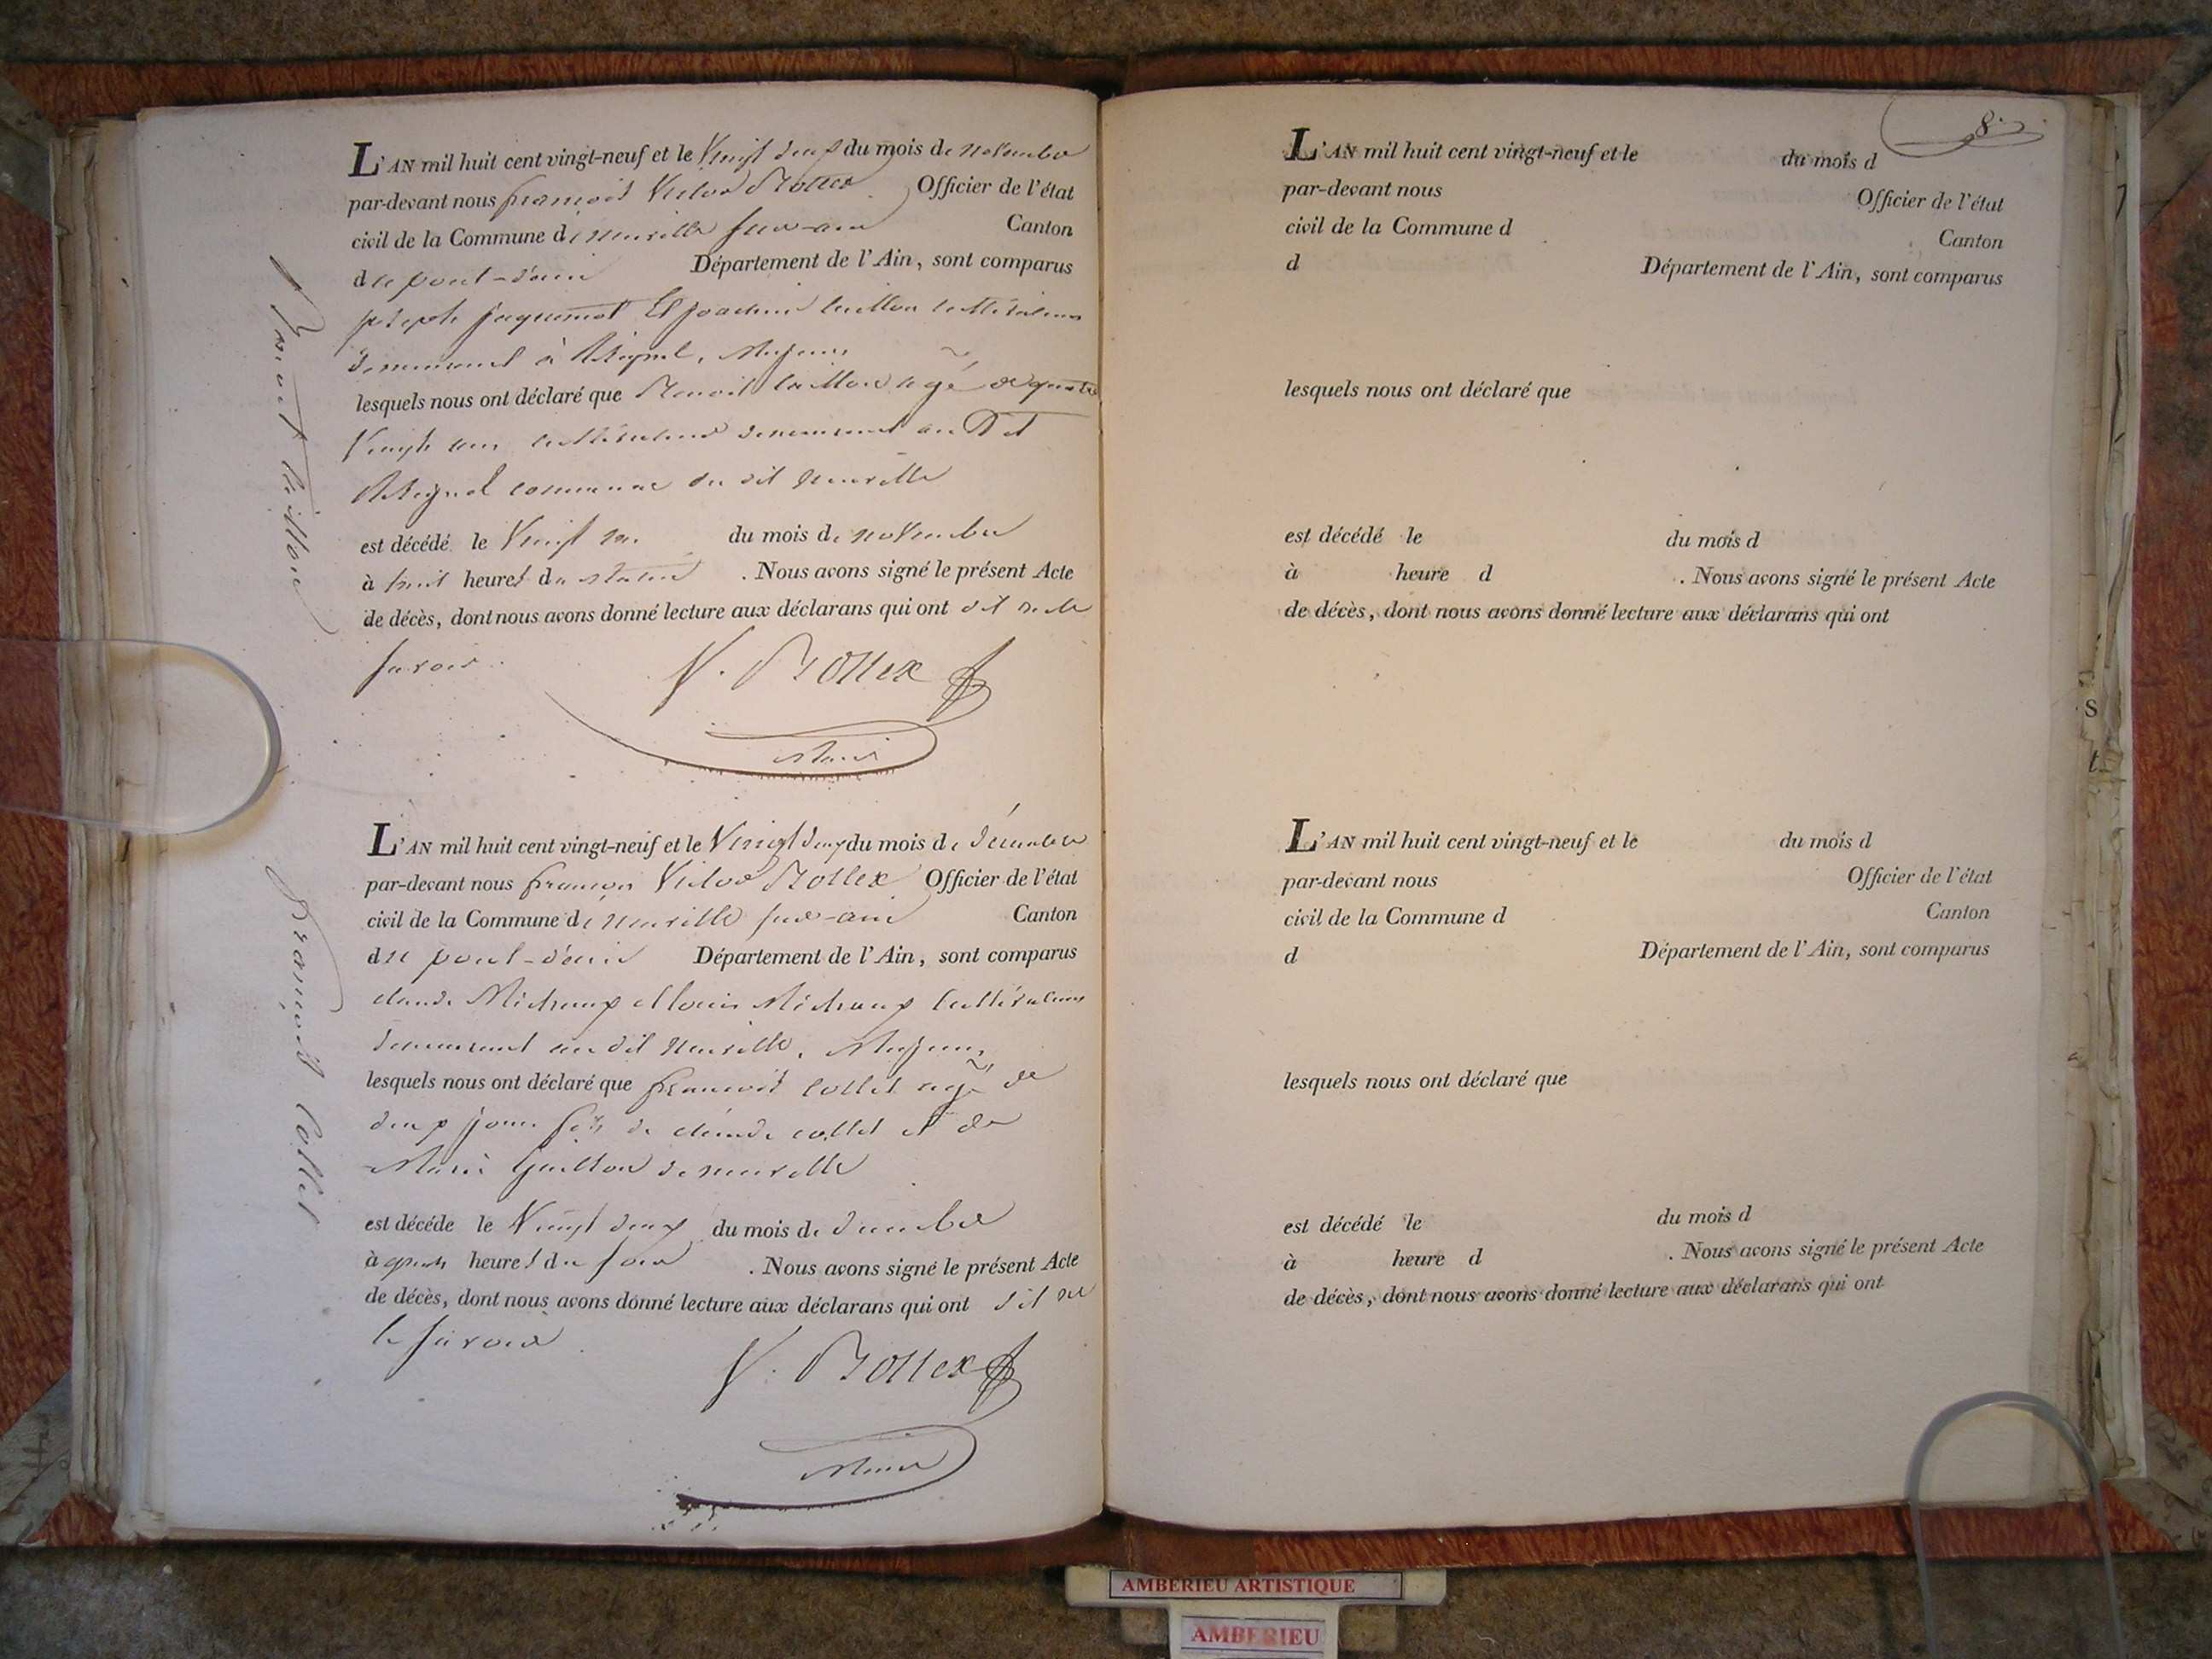 L'AN mil huit cent vingt-neuf et le Vingt deux du mois de novembre
par-devant nous françois Victor Bottex Officier de l'état
civil de la Commune de neuville sur-ain Canton
de pont-d'ain Département de l'Ain, sont comparus
joseph juquemot Et joachim cultivateurs
demeurant à Resignel, Majeurs
lesquels nous ont déclaré que Benoit agé de quatre
Vingts ans cultivateur demeurant au Dit
commune du dit neuville
est décédé le Vingt un du mois de novembre
à huit heures du matin . Nous avons signé le présent Acte
de décès, dont nous avons donné lecture aux déclarans qui ont dit ne le
savoir.
V. Bottex
Maire
Benoit
L'AN mil huit cent vingt-neuf et le Vingt deux du mois de décembre
par-devant nous françois Victor Bottex Officier de l'état
civil de la Commune de neuville sur-ain Canton
de pont-d'ain Département de l'Ain, sont comparus
claude Michaux et louis Michaux cultivateurs
demeurant au dit neuville, Majeurs
lesquels nous ont déclaré que françois collet agé de
deux jours fils de claude collet et de
Marie Guillon de neuville
est décéde le Vingt deux du mois de décembre
à quatre heures du soir . Nous avons signé le présent Acte
de décès, dont nous avons donné lecture aux déclarans qui ont dit ne
le savoir
V. Bottex
Maire
françois Collet
8.
L'AN mil huit cent vingt-neuf et le du mois d
par-devant nous Officier de l'état
civil de la Commune d Canton
d Département de l'Ain, sont comparus
lesquels nous ont déclaré que
est décédé le du mois d
à heure d . Nous avons signé le présent Acte
de décès, dont nous avons donné lecture aux déclarans qui ont
L'AN mil huit cent vingt-neuf et le du mois d
par-devant nous Officier de l'état
civil de la Commune d Canton
d Département de l'Ain, sont comparus
lesquels nous ont déclaré que
est décédé le du mois d
à heure d . Nous avons signé le présent Acte
de décès, dont nous avons donné lecture aux déclarans qui ont
S
t
AMBERIEU ARTISTIQUE
AMBERIEU